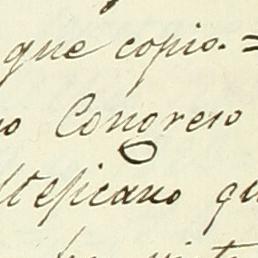 que copio.=
no Congreso
ltepicano qu